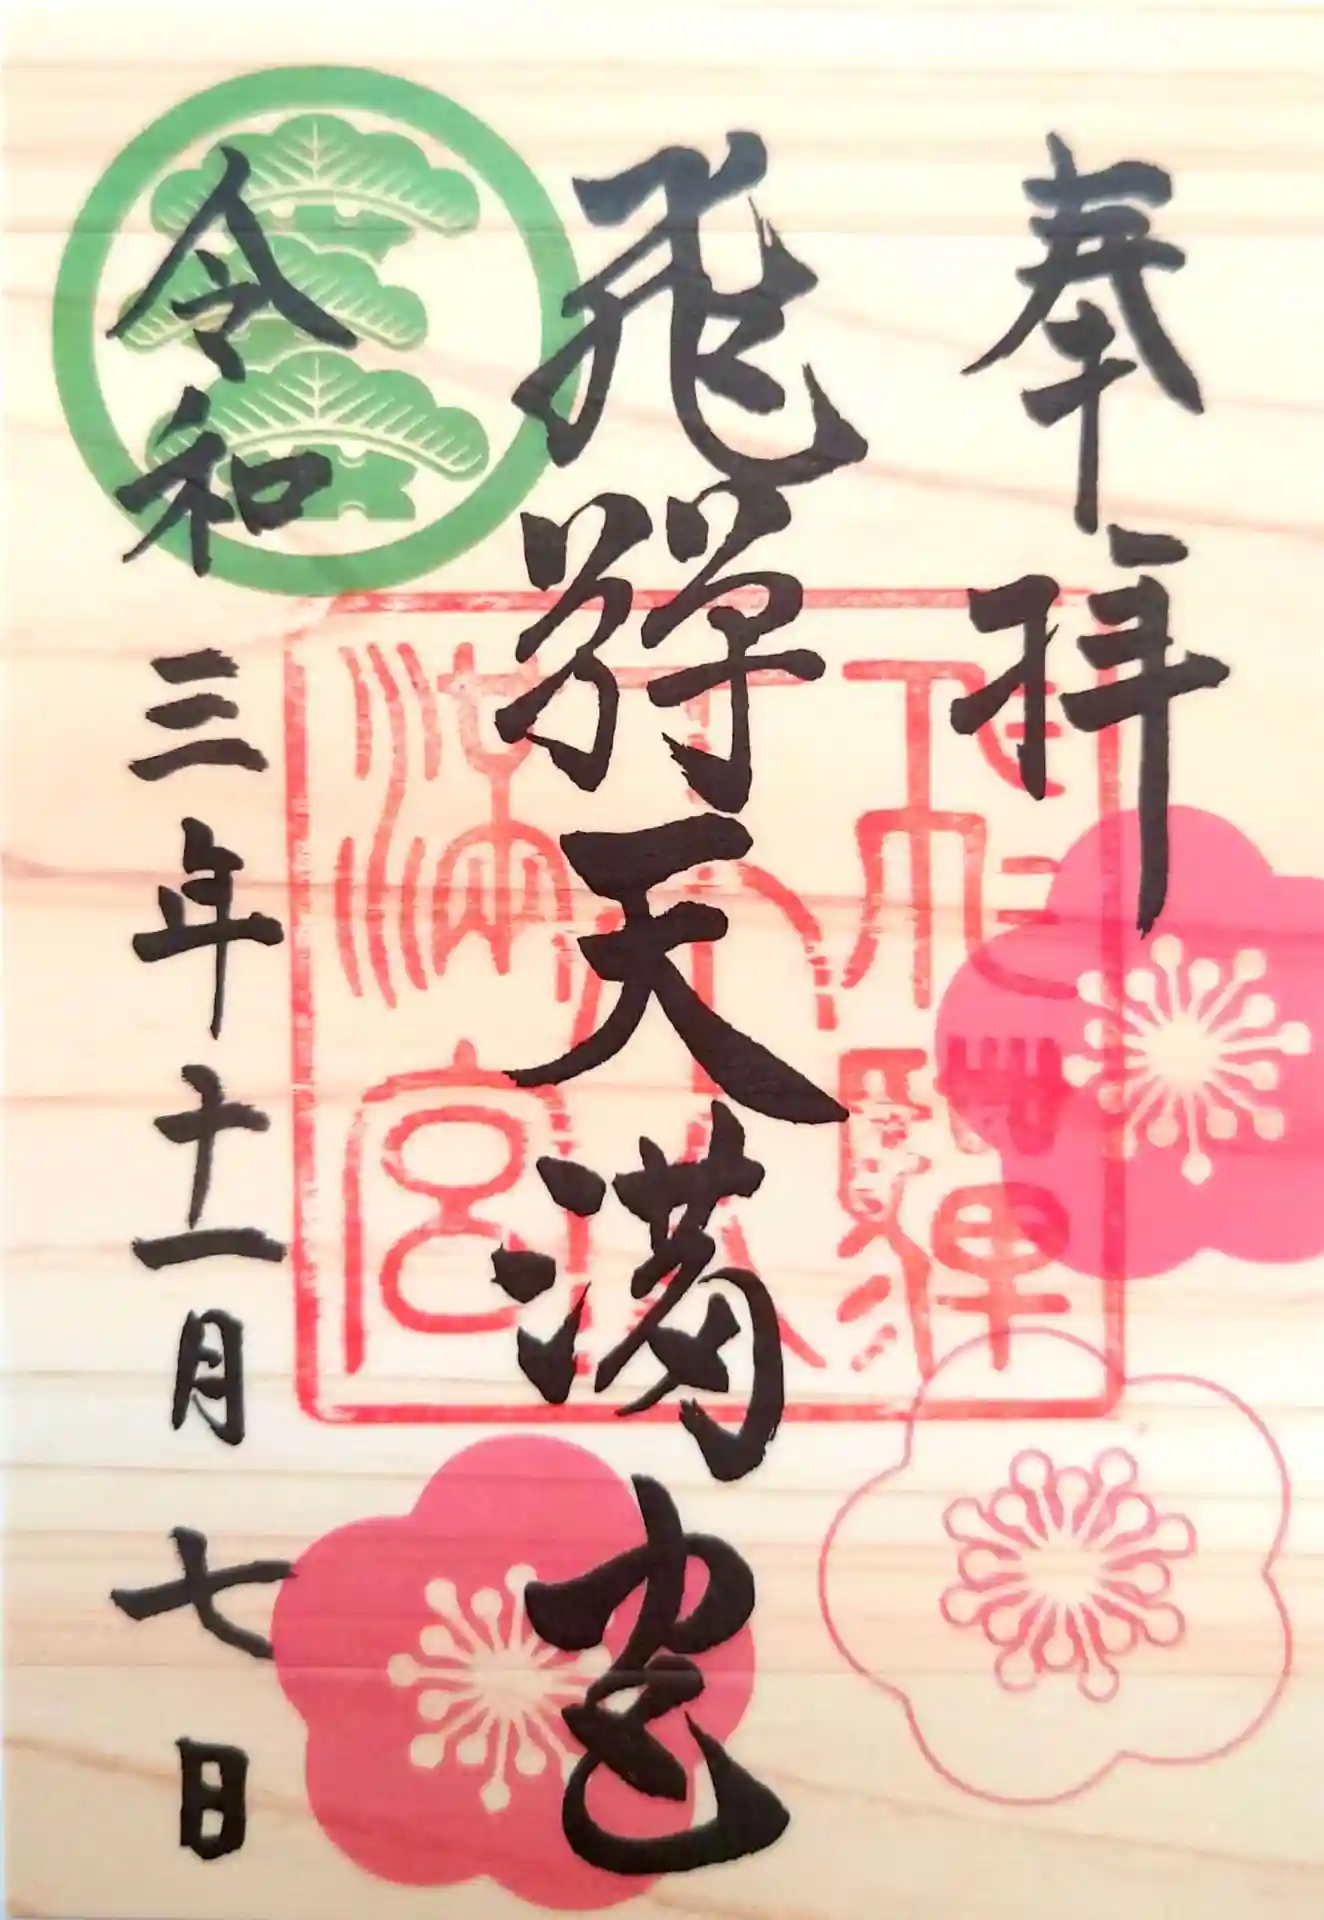 奉拝
飛騨天満宮
令和三年十一月七日
飛驒
天
滿宮